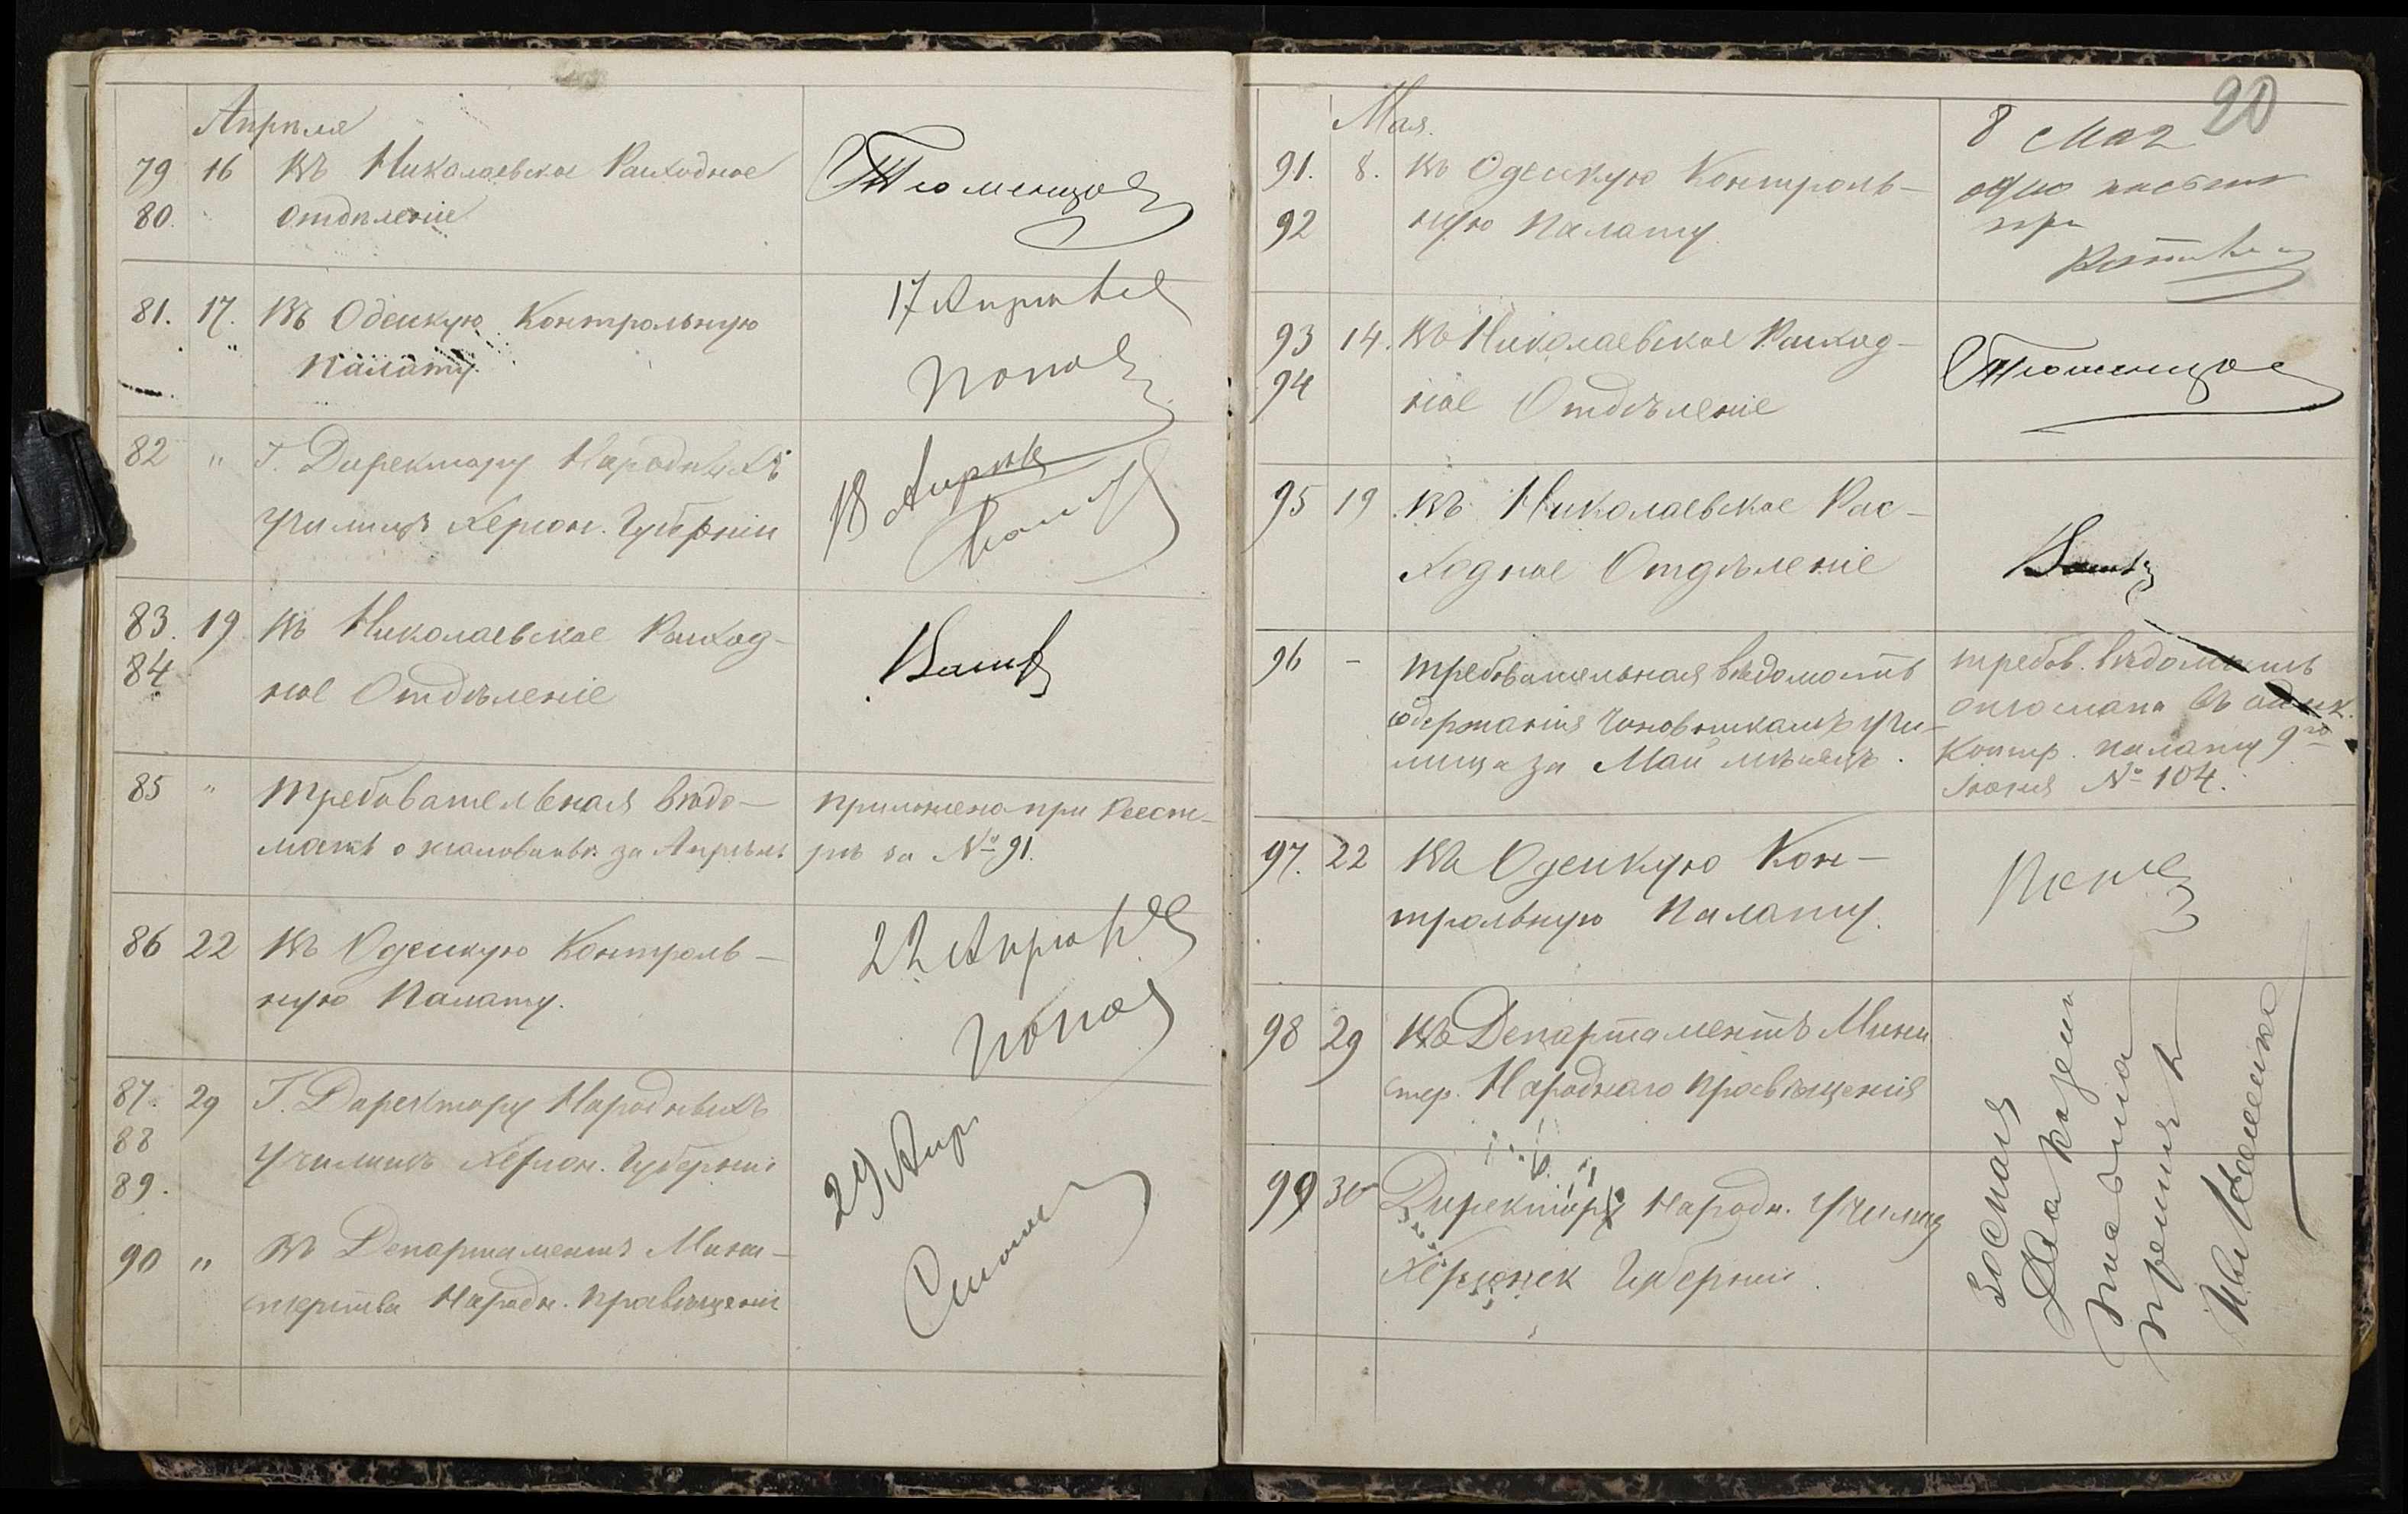 Апрѣля
79 16 Въ Николаевское Расходное
80. Отдѣленіе
Тюменцов
81. 17. Въ Одесскую Контрольную
Палату.
17 Апрѣля
Попов
82 " Г. Директору Народныхъ
училищъ Херсон. Губерніи
18 Апрѣ
83. 19 Въ Николаевское Расход-
84 ное Отдѣленіе
85 " Требовательная вѣдо-
мость о жалованьи за Апрѣль
приложена при Реест-
рѣ за № 91.
86 22 Въ Одесскую Контроль-
ную Палату.
22 Апрѣля
Попов
87. 29 Г. Директору Народныхъ
88 Училищъ Херсон. Губерніи
89.
90 " Въ Департаментъ Мини-
стерства Народн. Просвѣщенія
29 Апр
20
Мая.
91. 8. Въ Одесскую Контроль-
92 ную Палату.
8 Мая
одно
93 14. Въ Николаевское Расход-
94 ное Отдѣленіе
Тюменцов
95 19 Въ Николаевское Рас-
ходное Отдѣленіе
96 - Требовательная вѣдомость
содержанія чиновникамъ учи-
лища за Май мѣсяцъ.
требов. вѣдомость
отослана въ одесск.
Контр. палату 9го
Іюня № 104.
97. 22 Въ Одесскую Кон-
трольную Палату.
98 29 Въ Департаментъ Мини
стер. Народнаго Просвѣщенія
99 30 Директору Народн. Училищ
Херсонск Губерніи.
Два казен